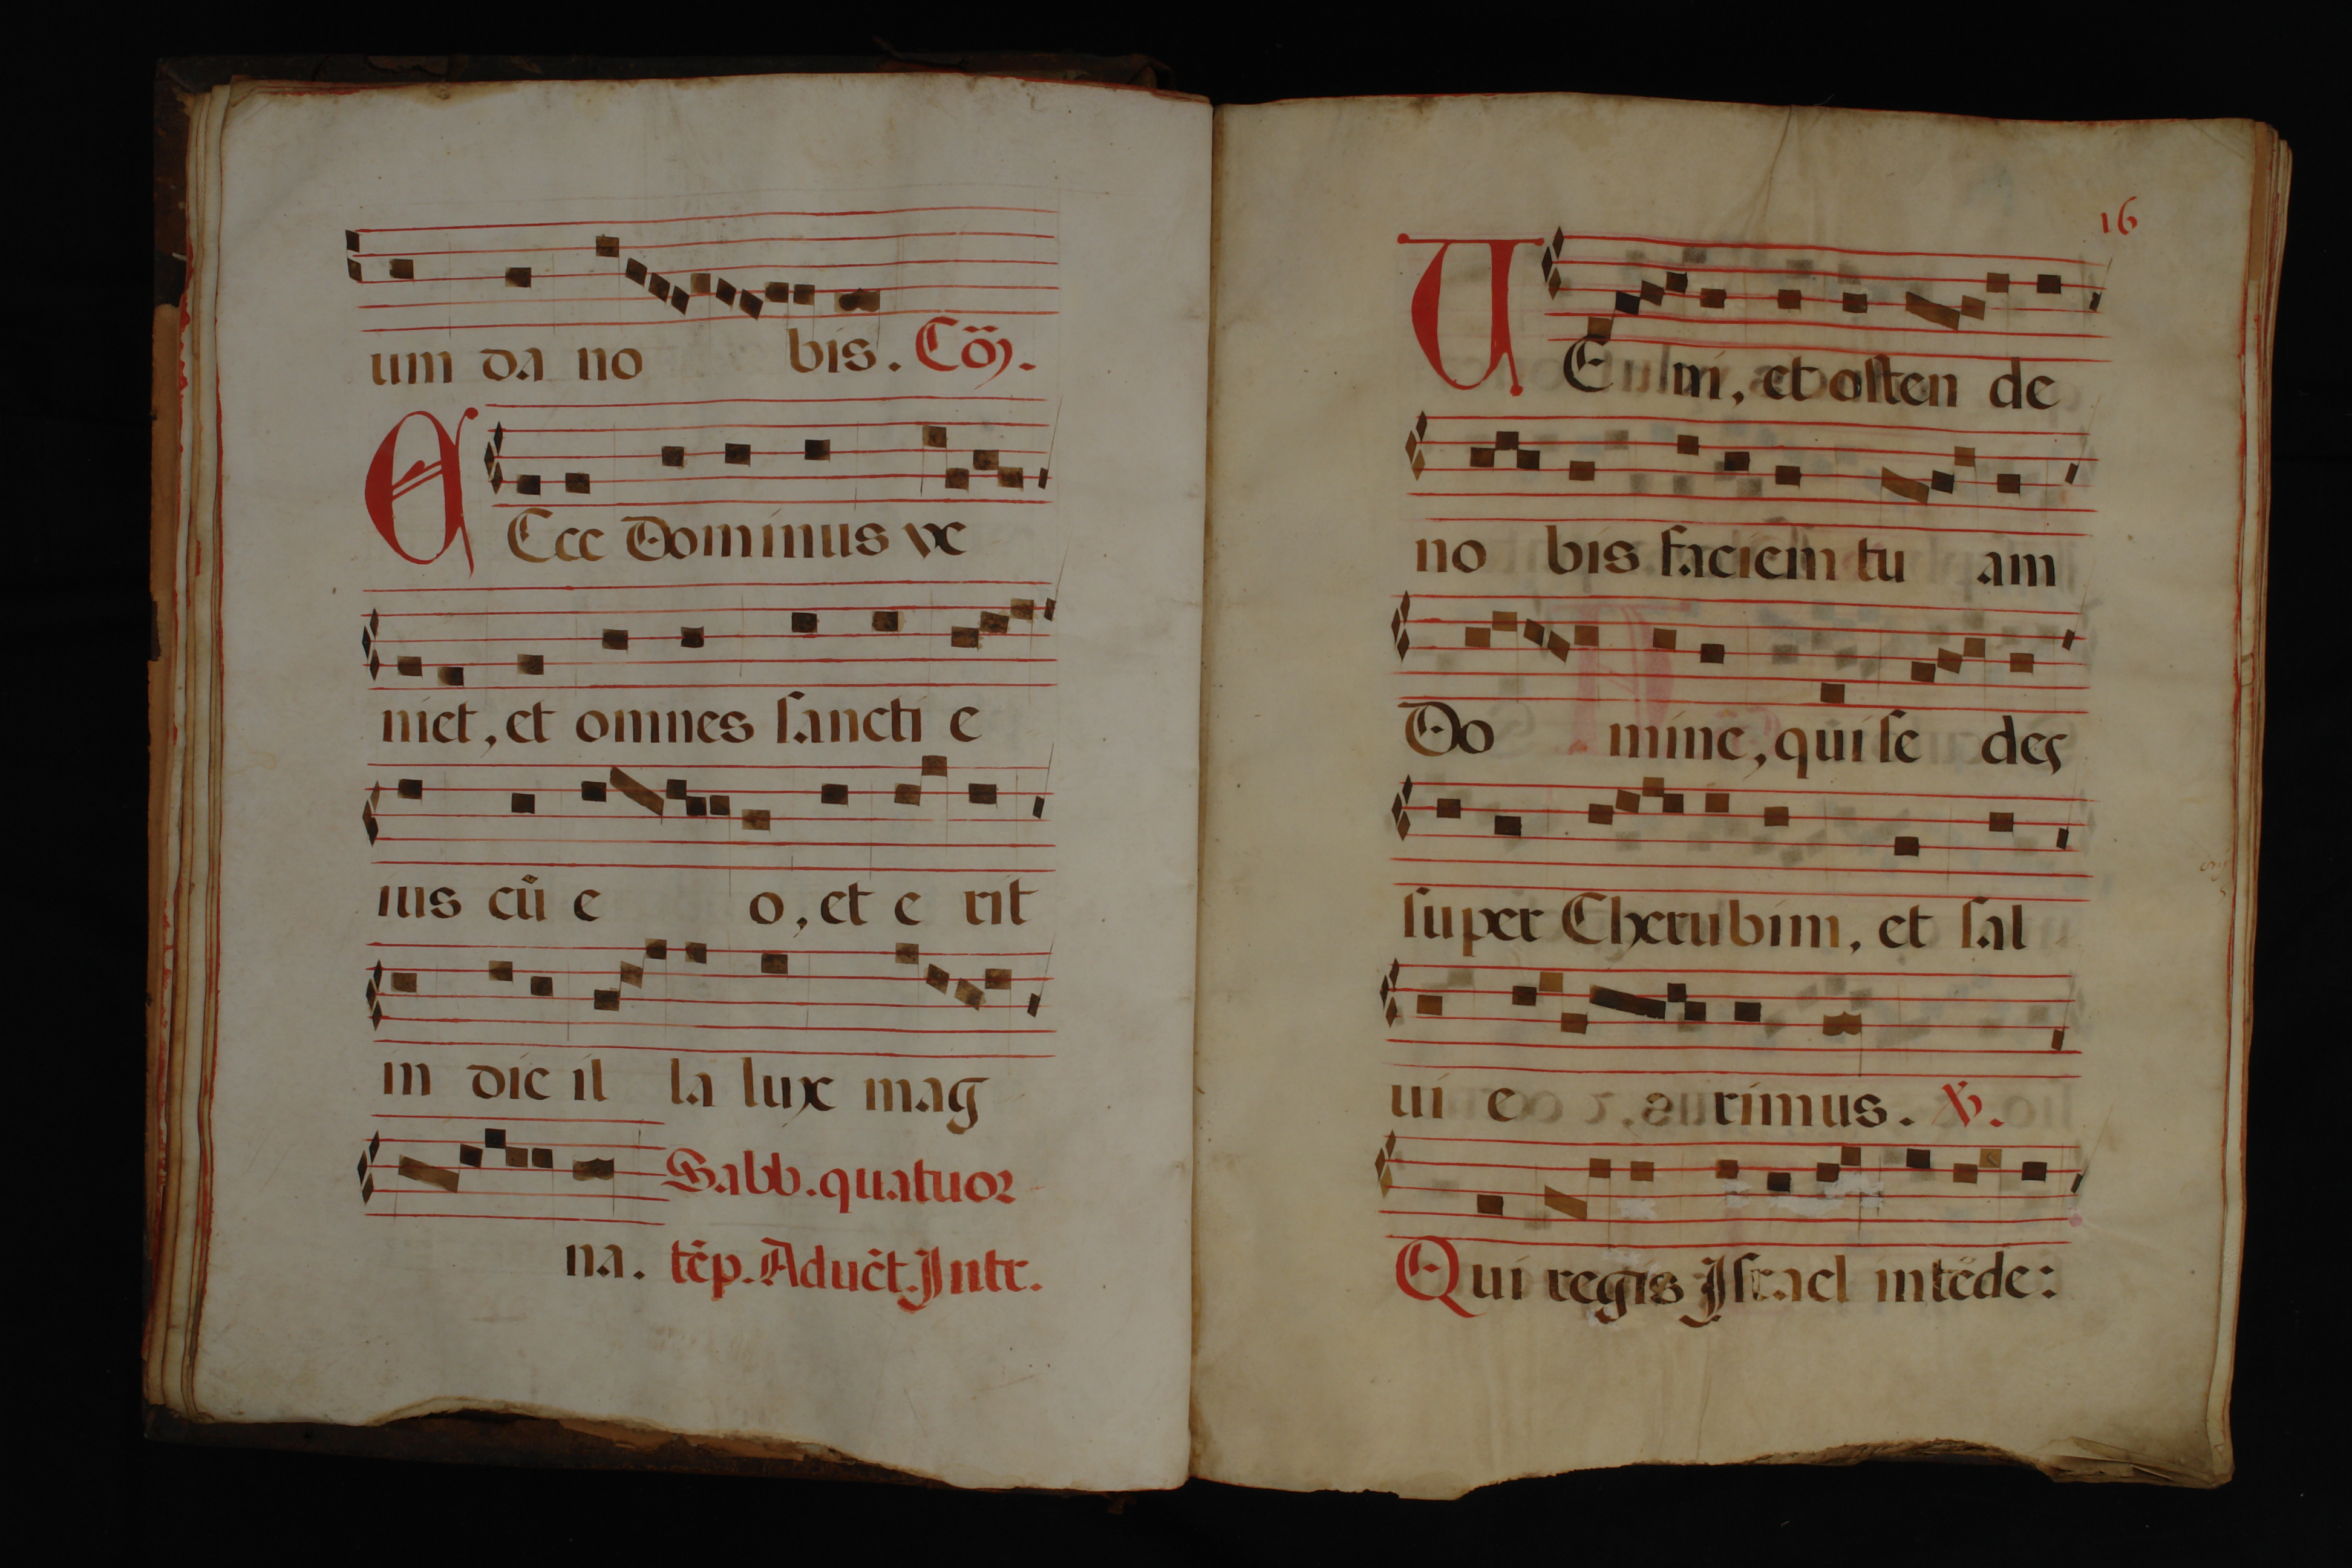 um da no bis. Cõ.
ECce Dominus ve
niet, et omnes sancti e
ius cũ e o, et e rit
in die il la lux mag
na. Sabb. quatuor
tẽp. Aduẽt. Intr.
16
VEni, et osten de
no bis faciem tu am
Do mine, qui se des
super Cherubim, et sal
ui e rimus. V.
Qui regis Israel intẽde: